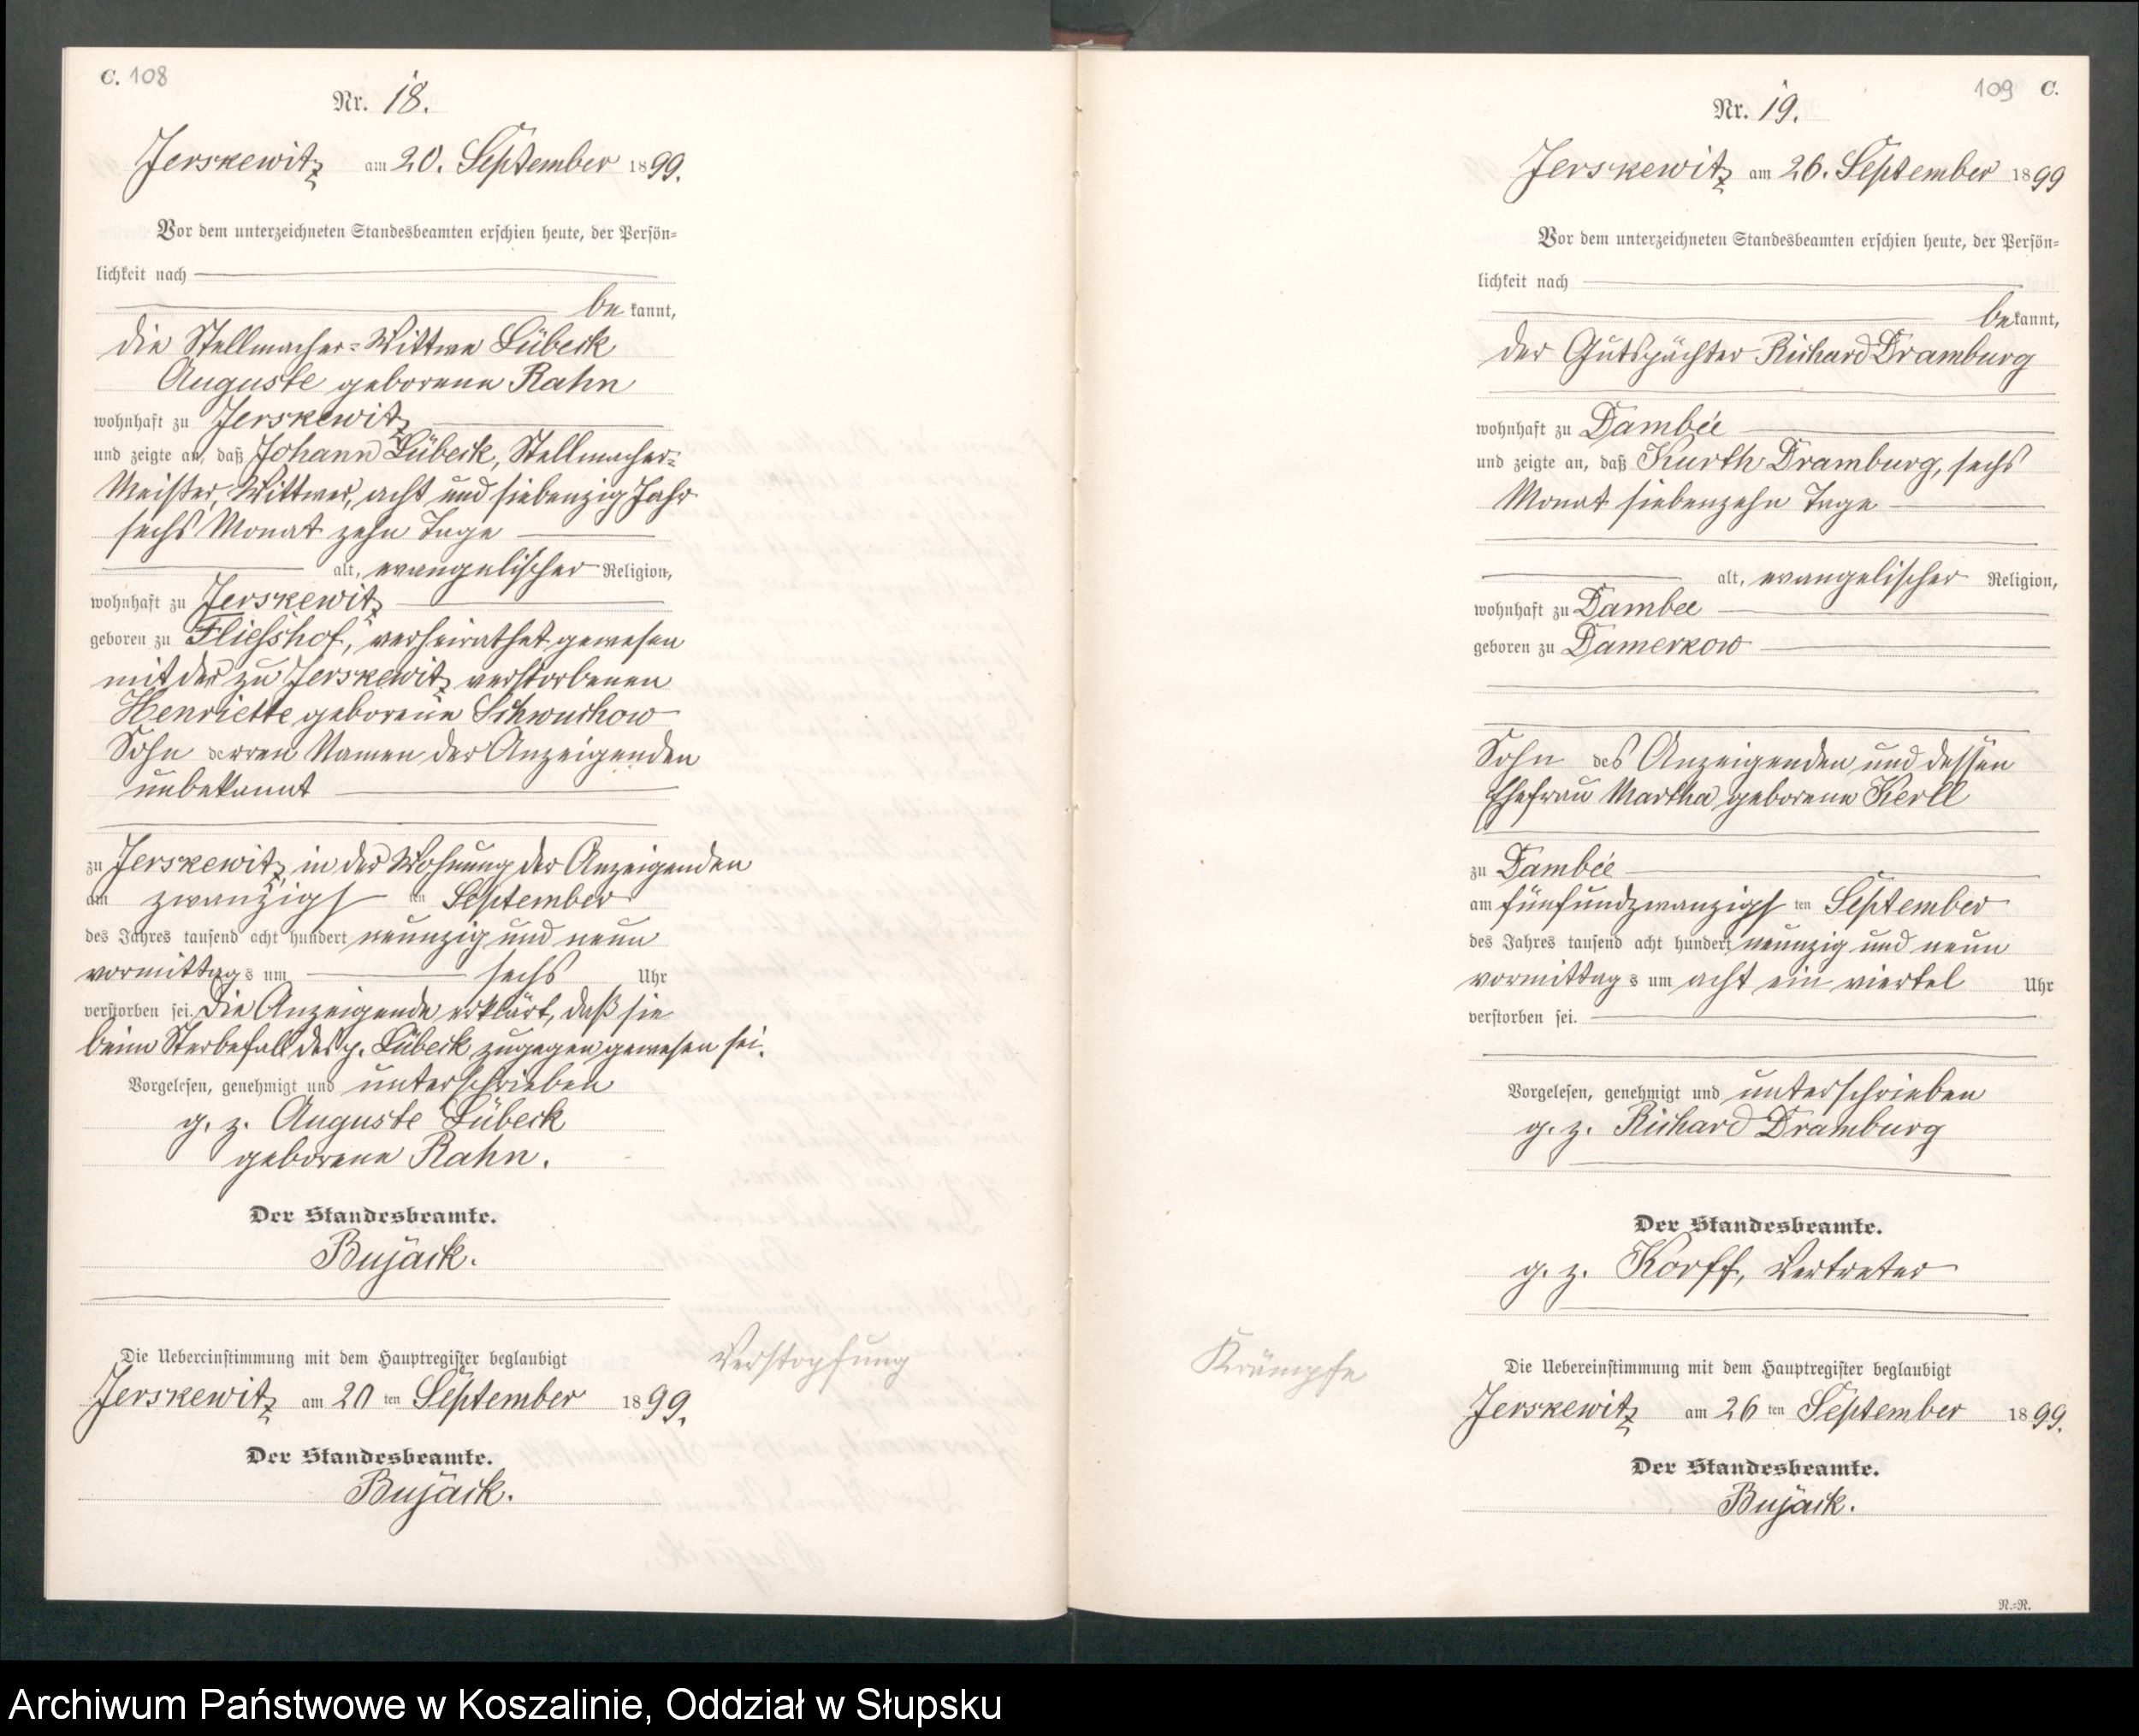 C. 108
Nr. 18.
Jerskewitz am 20. September 1899.
Vor dem unterzeichneten Standesbeamten erschien heute, der Persön-
lichkeit nach
bekannt,
die Stellmacher-Wittwe Lübeck
Auguste geborene Rahn
wohnhaft zu Jerskewitz
und zeigte an, daß Johann Lübeck, Stellmacher-
Meister, Wittwer, acht und siebenzig Jahr
sechs Monat zehn Tage
alt, evangelischer Religion,
wohnhaft zu Jerskewitz
geboren zu Fliesshof, verheirathet gewesen
mit der zu Jerskewitz verstorbenen
Henriette geborene Schwuchow
Sohn derren Namen der Anzeigenden
unbekannt
zu Jerskewitz, in der Wohnung der Anzeigenden
am zwanzigsten September
des Jahres tausend acht hundert neunzig und neun
vormittags um sechs Uhr
verstorben sei. Die Anzeigende erklärt, daß sie
beim Sterbefall des p. Lübeck zugegen gewesen sei.
Vorgelesen, genehmigt und unterschrieben
g. z. Auguste Lübeck
geborene Rahn.
Der Standesbeamte.
Bujack.
Verstopfung
Die Uebereinstimmung mit dem Hauptregister beglaubigt
Jerskewitz am 20 ten September 1899.
Der Standesbeamte.
Bujack.
109 C.
Nr. 19.
Jerskewitz am 26. September 1899
Vor dem unterzeichneten Standesbeamten erschien heute, der Persön-
lichkeit nach
bekannt,
der Gutspächter Richard Dramburg
wohnhaft zu Dambée
und zeigte an, daß Kurth Dramburg, sechs
Monat siebenzehn Tage
alt, evangelischer Religion,
wohnhaft zu Dambee
geboren zu Damerkow
Sohn des Anzeigenden und dessen
Ehefrau Martha geborene Kerll
zu Dambée
am fünfundzwanzigsten September
des Jahres tausend acht hundert neunzig und neun
vormittags um acht ein viertel Uhr
verstorben sei.
Vorgelesen, genehmigt und unterschrieben
g. z. Richard Dramburg
Der Standesbeamte.
g. z. Korff, Vertreter
Krämpfe
Die Uebereinstimmung mit dem Hauptregister beglaubigt
Jerskewitz am 26 ten September 1899.
Der Standesbeamte.
Bujack.
N.-N.
Archiwum Państwowe w Koszalinie, Oddział w Słupsku